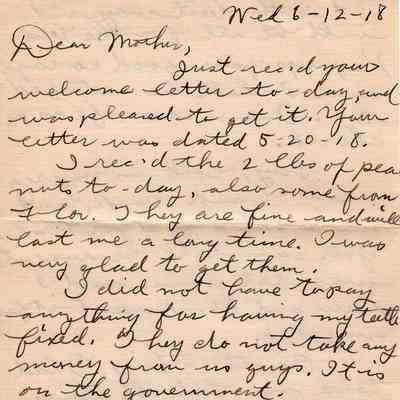 Wed 6-12-18
Dear Mother,
Just rec'd your
welcome letter to-day, and
was pleased to get it. Your
letter was dated 5-20-18.
I rec'd the 2 lbs of pea
nuts to-day, also some from
Flor. They are fine and will
last me a long time. I was
very glad to get them.
I did not have to pay
anything for having my teeth
fixed. They do not take any
money from us guys. It is
on the government.